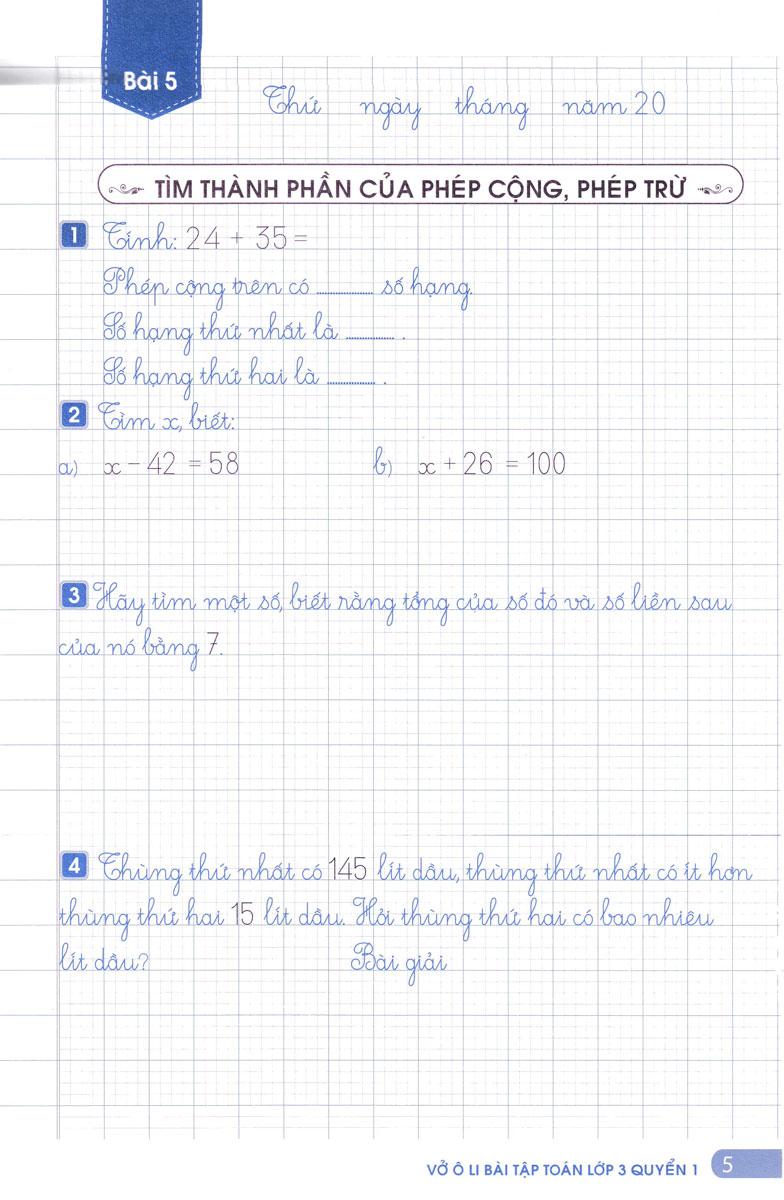 Bài 5
Thứ ngày tháng năm 20
TÌM THÀNH PHẦN CỦA PHÉP CỘNG, PHÉP TRỪ
1 Tính: 24 + 35 =
Phép cộng trên có ........... số hạng.
Số hạng thứ nhất là ........... .
Số hạng thứ hai là ........... .
2 Tìm x, biết:
a) x - 42 = 58 b) x + 26 = 100
3 Hãy tìm một số, biết rằng tổng của số đó và số liền sau
của nó bằng 7.
4 Thùng thứ nhất có 145 lít dầu, thùng thứ nhất có ít hơn
thùng thứ hai 15 lít dầu. Hỏi thùng thứ hai có bao nhiêu
lít dầu? Bài giải
VỞ Ô LI BÀI TẬP TOÁN LỚP 3 QUYỂN 1 5